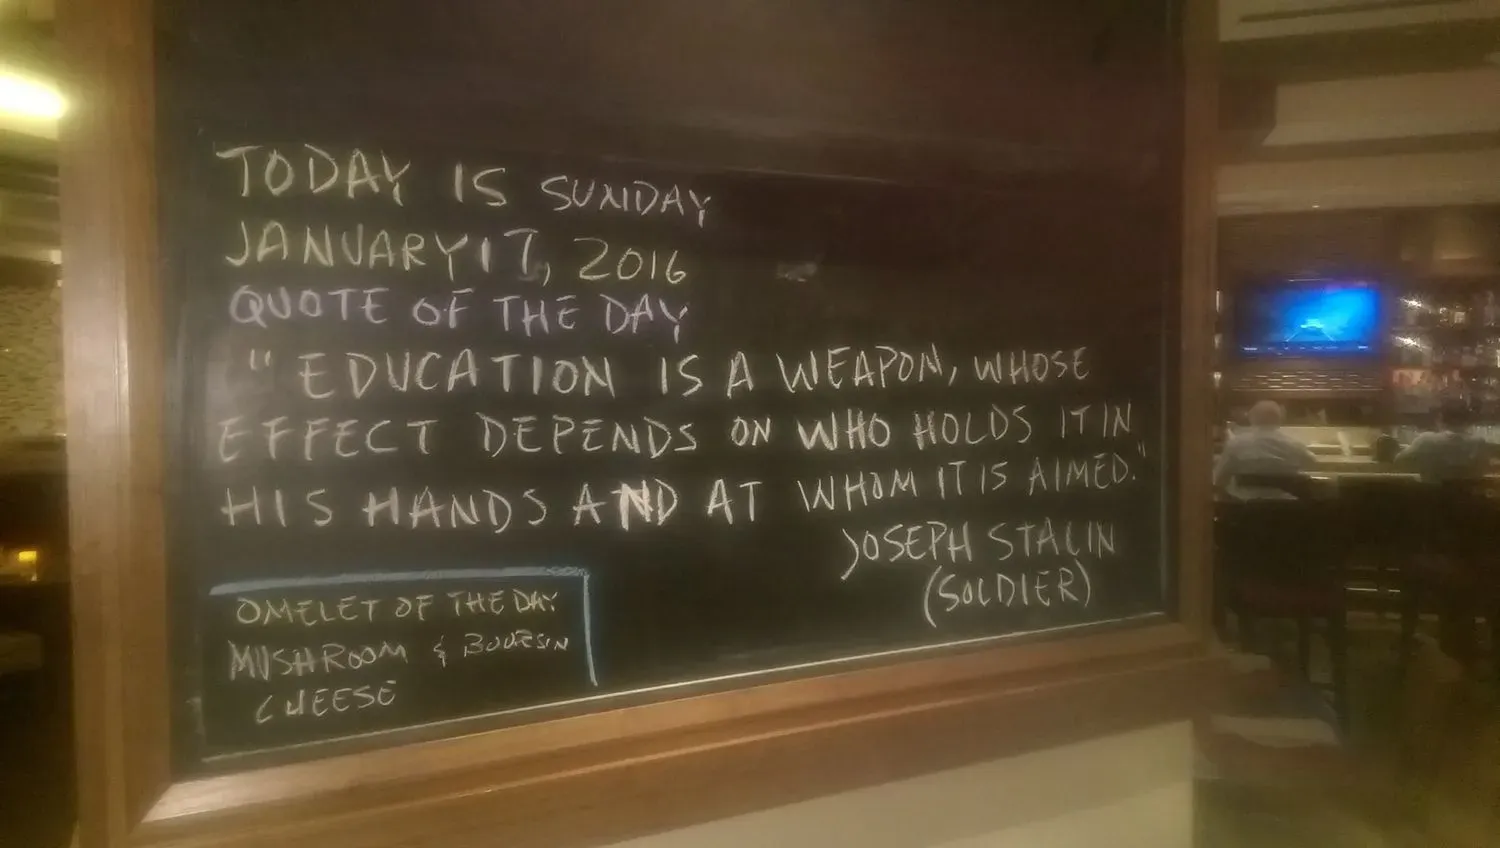 TODAY IS SUNDAY
JANUARY 17, 2016
QUOTE OF THE DAY
"EDUCATION IS A WEAPON, WHOSE
EFFECT DEPENDS ON WHO HOLDS IT IN
HIS HANDS AND AT WHOM IT IS AIMED."
JOSEPH STALIN
(SOLDIER)
OMELET OF THE DAY
MUSHROOM & BOURSIN
CHEESE